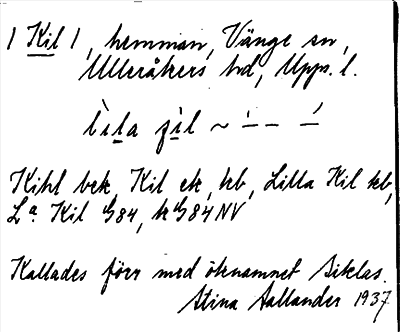 / Kil /, hemman, Vänge sn,
Ulleråkers hd, Upps. l.
lìla ʃìl ~ ˈ– – –́
Kihl bek, Kil ek, kb, Lilla Kil kb,
Lᵃ Kil G84, k G84 NV
Kallades förr med öknamnet Siklas.
Stina Sallander 1937